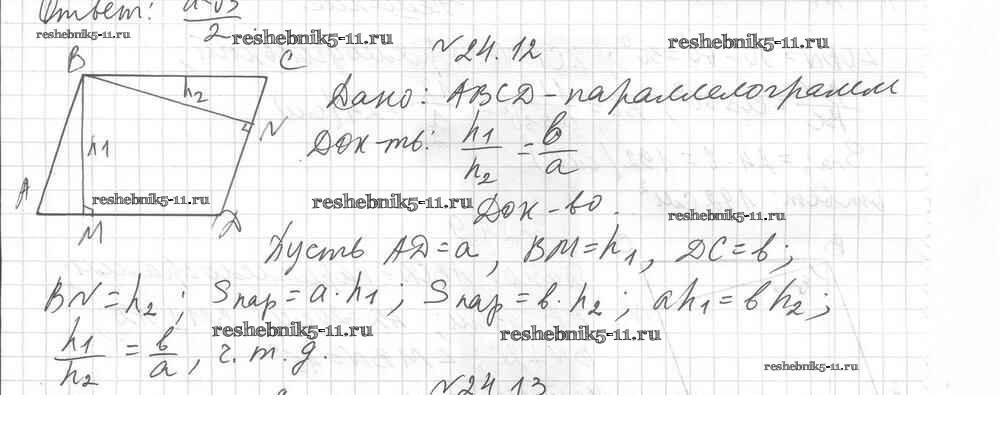 Ответ: a√3/2
reshebnik5-11.ru reshebnik5-11.ru reshebnik5-11.ru
№24.12
B C
h2
Дано: ABCD-параллелограмм
N
Док-ть: h1/h2 = b/a
h1
A
reshebnik5-11.ru reshebnik5-11.ru reshebnik5-11.ru
Док-во.
M D
Пусть AD=a, BM=h1, DC=b;
BN=h2; Sпар=a·h1; Sпар=b·h2; ah1=bh2;
reshebnik5-11.ru reshebnik5-11.ru
h1/h2 = b/a, ч.т.д.
reshebnik5-11.ru
№24.13